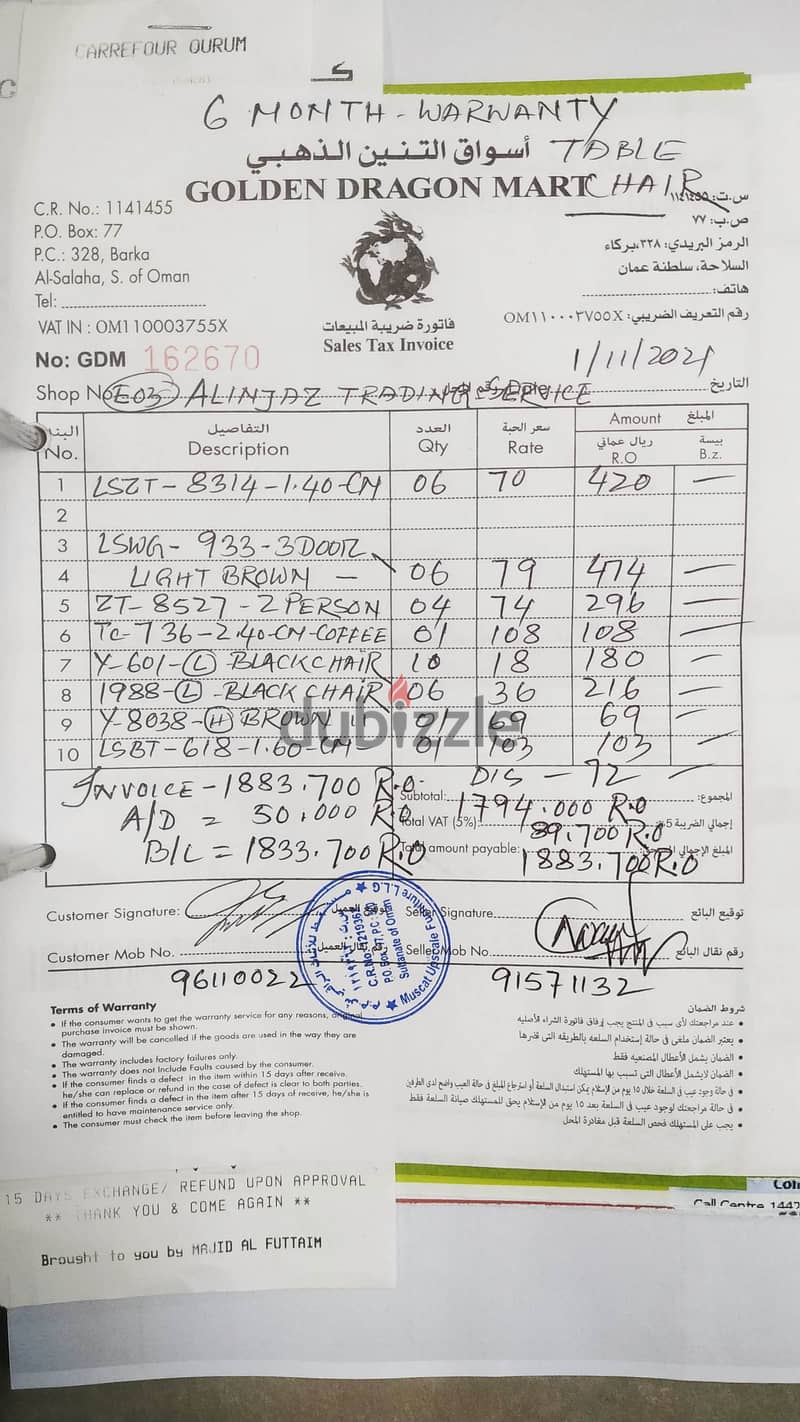 CARREFOUR QURUM
6 MONTH - WARWANTY
أسواق التنين الذهبي TABLE
GOLDEN DRAGON MART CHAIR
C.R. No.: 1141455
P.O. Box: 77
P.C.: 328, Barka
Al-Salaha, S. of Oman
Tel:
VAT IN : OM110003755X
No: GDM 162670
س.ت: ١١٤١٤٥٥
ص.ب: ٧٧
الرمز البريدي: ٣٢٨، بركاء
السلاحة، سلطنة عمان
هاتف:
رقم التعريف الضريبي: OM١١٠٠٠٣٧٥٥X
فاتورة ضريبة المبيعات
Sales Tax Invoice
1/11/2021
Shop No E03 ALINJAZ TRADING & SERVICE التاريخ
البند التفاصيل العدد سعر الحبة Amount المبلغ
No. Description Qty Rate ريال عماني R.O بيسة B.z.
1 LSZT - 8314 - 1.40 - CM 06 70 420 —
2
3 LSWG - 933 - 3DOOR
4 LIGHT BROWN — 06 79 474 —
5 ZT - 8527 - 2 PERSON 04 74 296 —
6 TC - 736 - 2.40 - CM - COFFEE 01 108 108 —
7 Y - 601 - (L) - BLACK CHAIR 10 18 180 —
8 1988 - (L) - BLACK CHAIR 06 36 216 —
9 Y - 8038 - (H) BROWN 11 01 69 69 —
10 LSBT - 618 - 1.60 - CM - 01 103 103 —
dubizzle
DIS - 72 —
INVOICE - 1883.700 R.O
A/D = 50.000 R.O
B/L = 1833.700 R.O
Subtotal: 1794.000 R.O المجموع:
Total VAT (5%): 89.700 R.O إجمالي الضريبة 5%
Total amount payable: 1883.700 R.O
Customer Signature: توقيع العميل
Seller Signature توقيع البائع
Customer Mob No. 96110022 رقم نقال العميل
Seller Mob No. 91571132 رقم نقال البائع
Muscat Upscale Furniture L.L.C
Sultanate of Oman
Terms of Warranty
• If the consumer wants to get the warranty service for any reasons, original
purchase invoice must be shown.
• The warranty will be cancelled if the goods are used in the way they are
damaged.
• The warranty includes factory failures only.
• The warranty does not Include Faults caused by the consumer.
• If the consumer finds a defect in the item within 15 days after receive.
he/she can replace or refund in the case of defect is clear to both parties.
• If the consumer finds a defect in the item after 15 days of receive, he/she is
entitled to have maintenance service only.
• The consumer must check the item before leaving the shop.
شروط الضمان
• عند مراجعتك لأى سبب فى المنتج يجب إرفاق فاتورة الشراء الأصليه
• يعتبر الضمان ملغى فى حالة إستخدام السلعه بالطريقه التى تضرها
• الضمان يشمل الأعطال المصنعيه فقط
• الضمان لايشمل الأعطال التى تسبب بها المستهلك
• فى حالة وجود عيب فى السلعة خلال ١٥ يوم من الإستلام يمكن استبدال السلعة أو استرجاع المبلغ فى حالة العيب واضح لدى الطرفين
• فى حالة مراجعتك لوجود عيب فى السلعة بعد ١٥ يوم من الإستلام يحق للمستهلك صيانة السلعة فقط
• يجب على المستهلك فحص السلعة قبل مغادرة المحل
15 DAYS EXCHANGE/ REFUND UPON APPROVAL
** THANK YOU & COME AGAIN **
Brought to you by MAJID AL FUTTAIM
Call Centre 1442